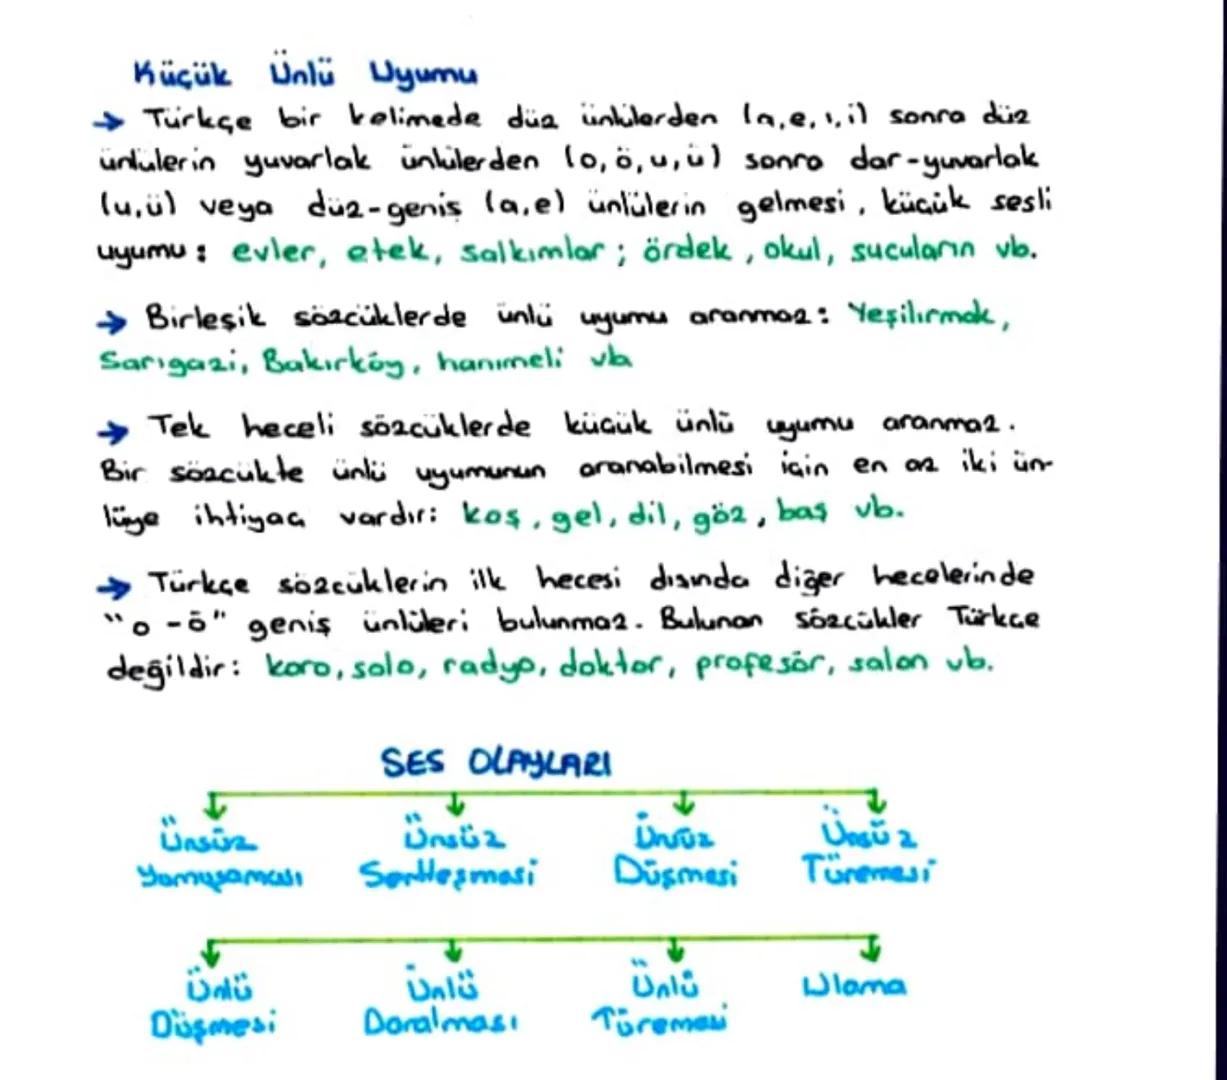 Küçük Ünlü Uyumu
→ Türkçe bir kelimede düz ünlülerden (a,e,ı,i) sonra düz
ünlülerin yuvarlak ünlülerden (o,ö,u,ü) sonra dar-yuvarlak
(u,ü) veya düz-geniş (a,e) ünlülerin gelmesi, küçük sesli
uyumu: evler, etek, salkımlar; ördek, okul, sucuların vb.
→ Birleşik sözcüklerde ünlü uyumu aranmaz: Yeşilırmak,
Sarıgazi, Bakırköy, hanımeli vb
→ Tek heceli sözcüklerde küçük ünlü uyumu aranmaz.
Bir sözcükte ünlü uyumunun aranabilmesi için en az iki ün-
lüye ihtiyaç vardır: koş, gel, dil, göz, baş vb.
→ Türkçe sözcüklerin ilk hecesi dışında diğer hecelerinde
"o-ö" geniş ünlüleri bulunmaz. Bulunan sözcükler Türkçe
değildir: koro, solo, radyo, doktor, profesör, salon vb.
SES OLAYLARI
Ünsüz Ünsüz Ünsüz Ünsüz
Yumuşaması Sertleşmesi Düşmesi Türemesi
Ünlü Ünlü Ünlü Ulama
Düşmesi Daralması Türemesi